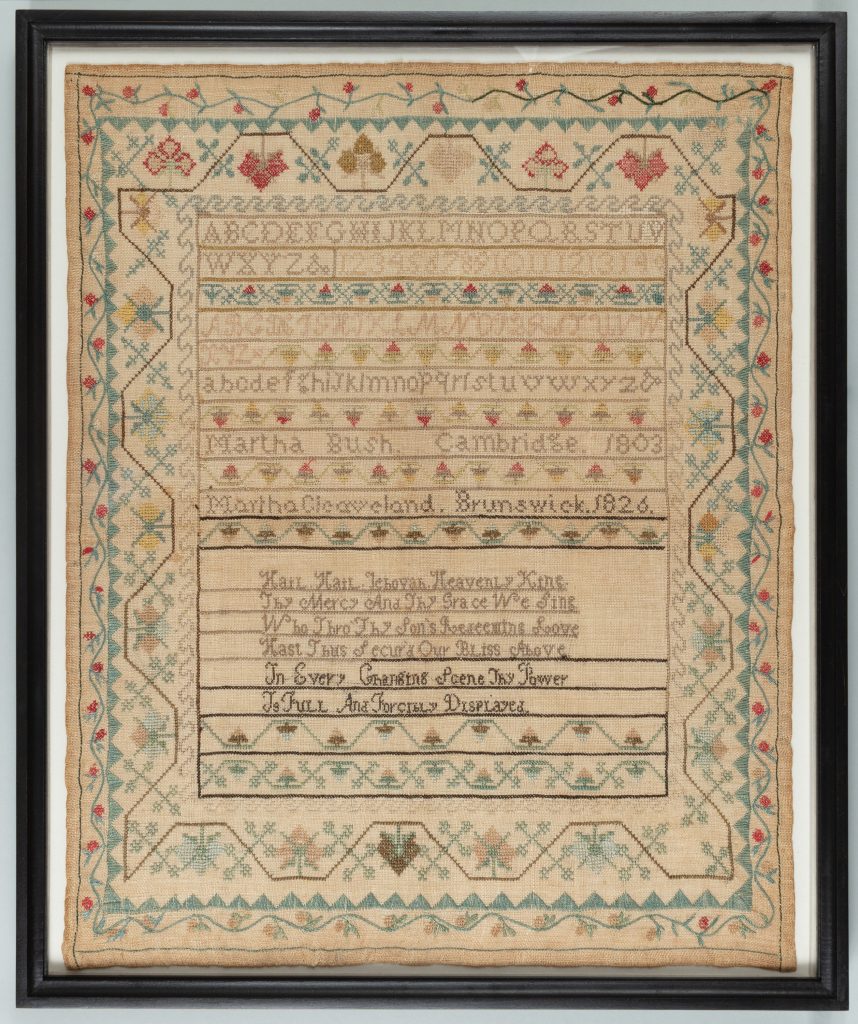 ABCDEFGHIJKLMNOPQRSTUV
WXYZ& 1234567891011121314
YZ
abcdefghijklmnopqrſstuvwxyz&
Martha Bush. Cambridge. 1803
Martha Cleaveland. Brunswick. 1826.
Hail Hail Jehovah Heavenly King
Thy Mercy And Thy Grace We Sing
Who Thro' Thy Son's Redeeming Love
Hast Thus Secur'd Our Bliss Above
In Every Changing Scene Thy Power
Is Full And Forcibly Displayed.